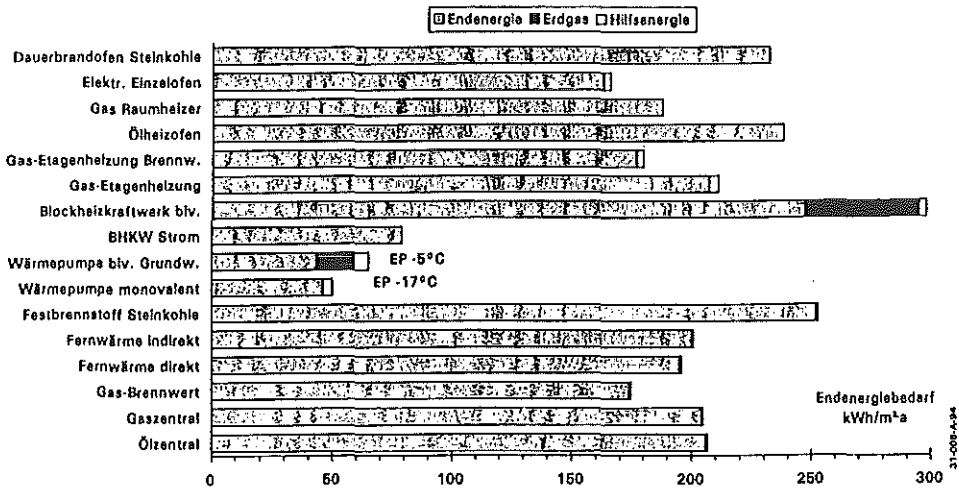 Endenergie Erdgas Hilfsenergie
Dauerbrandofen Steinkohle
Elektr. Einzelofen
Gas Raumheizer
Ölheizofen
Gas-Etagenheizung Brennw.
Gas-Etagenheizung
Blockheizkraftwerk biv.
BHKW Strom
Wärmepumpe biv. Grundw. EP -5°C
Wärmepumpe monovalent EP -17°C
Festbrennstoff Steinkohle
Fernwärme indirekt
Fernwärme direkt
Gas-Brennwert
Gaszentral
Ölzentral
Endenergiebedarf
kWh/m²a
0 50 100 150 200 250 300
31-008-A-94